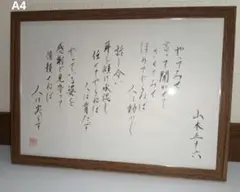 A4
やってみせ
言って聞かせて
させてみて
ほめてやらねば
人は動かじ
話し合い
耳を傾け承認し
任せてやらねば
人は育たず
やっている姿を
感謝で見守って
信頼せねば
人は実らず
山本五十六